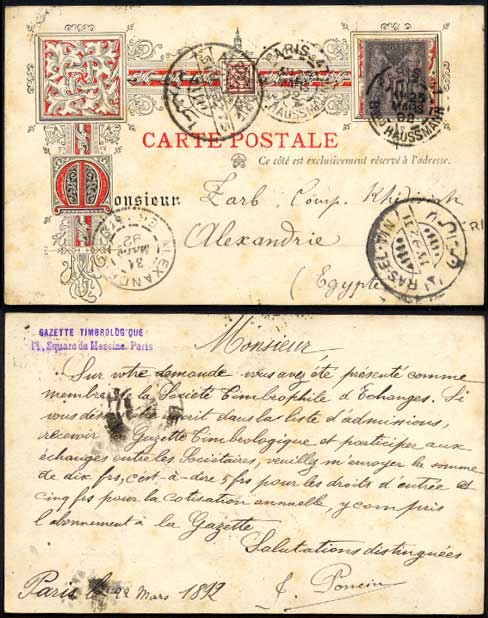 PARIS
Bd HAUSSMANN
PARIS
Bd HAUSSMANN
CARTE POSTALE
Ce côté est exclusivement réservé à l'adresse.
Monsieur Zarb, Comp. Khédiviah
Alexandrie
(Egypte
ALEXANDRIE
31
92
RAS-EL
GAZETTE TIMBROLOGIQUE
11, Square de Messine. Paris
Monsieur
Sur votre demande vous avez été présenté comme
membre de la Société Timbrophile d'Echanges. Si
vous désirez être inscrit dans la liste d'admissions,
recevoir la Gazette Timbrologique et participer aux
échanges entre les Sociétaires, veuillez m'envoyer la somme
de dix frs, c'est-à-dire 5 frs pour les droits d'entrée et
cinq frs pour la cotisation annuelle, y compris
l'abonnement à la Gazette
Salutations distinguées
Paris le 22 Mars 1892